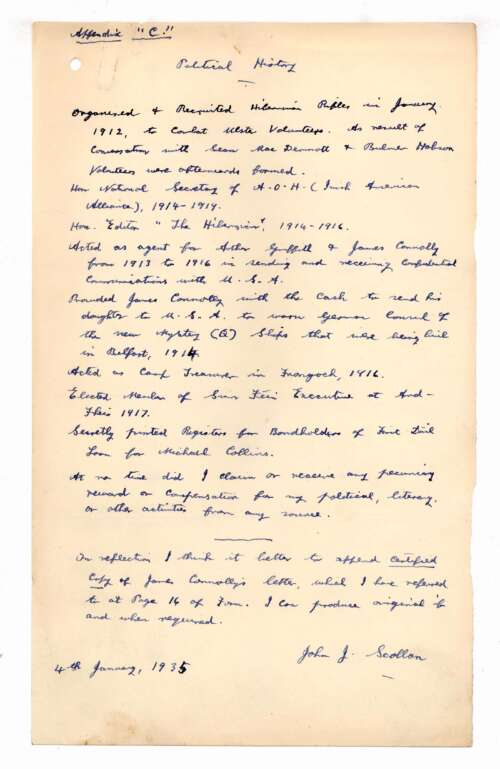 Appendix "C."
Political History
Organised & Recruited Hibernian Rifles in January
1912, to Combat Ulster Volunteers. As result of
Conversation with Sean Mac Dermott & Bulmer Hobson
Volunteers were afterwards formed.
Hon National Secretary of A.O.H. (Irish American
Alliance), 1914-1919.
Hon. Editor "The Hibernian", 1914-1916.
Acted as agent for Arthur Griffith & James Connolly
from 1913 to 1916 in sending and receiving Confidential
Communications with U.S.A.
Provided James Connolly with the Cash to send his
daughter to U.S.A. to warn German Consul of
the new Mystery (Q) Ships that were being built
in Belfast, 1914.
Acted as Camp Treasurer in Frongoch, 1916.
Elected Member of Sinn Féin Executive at Ard-
Fheis 1917.
Secretly printed Registers for Bondholders of First Dáil
Loan for Michael Collins.
At no time did I claim or receive any pecuniary
reward or Compensation for my political, literary,
or other activities from any source.
On reflection I think it better to append Certified
Copy of James Connolly's letter, which I have referred
to at Page 16 of Form. I can produce original if
and when required.
John J. Scollan
4th January, 1935